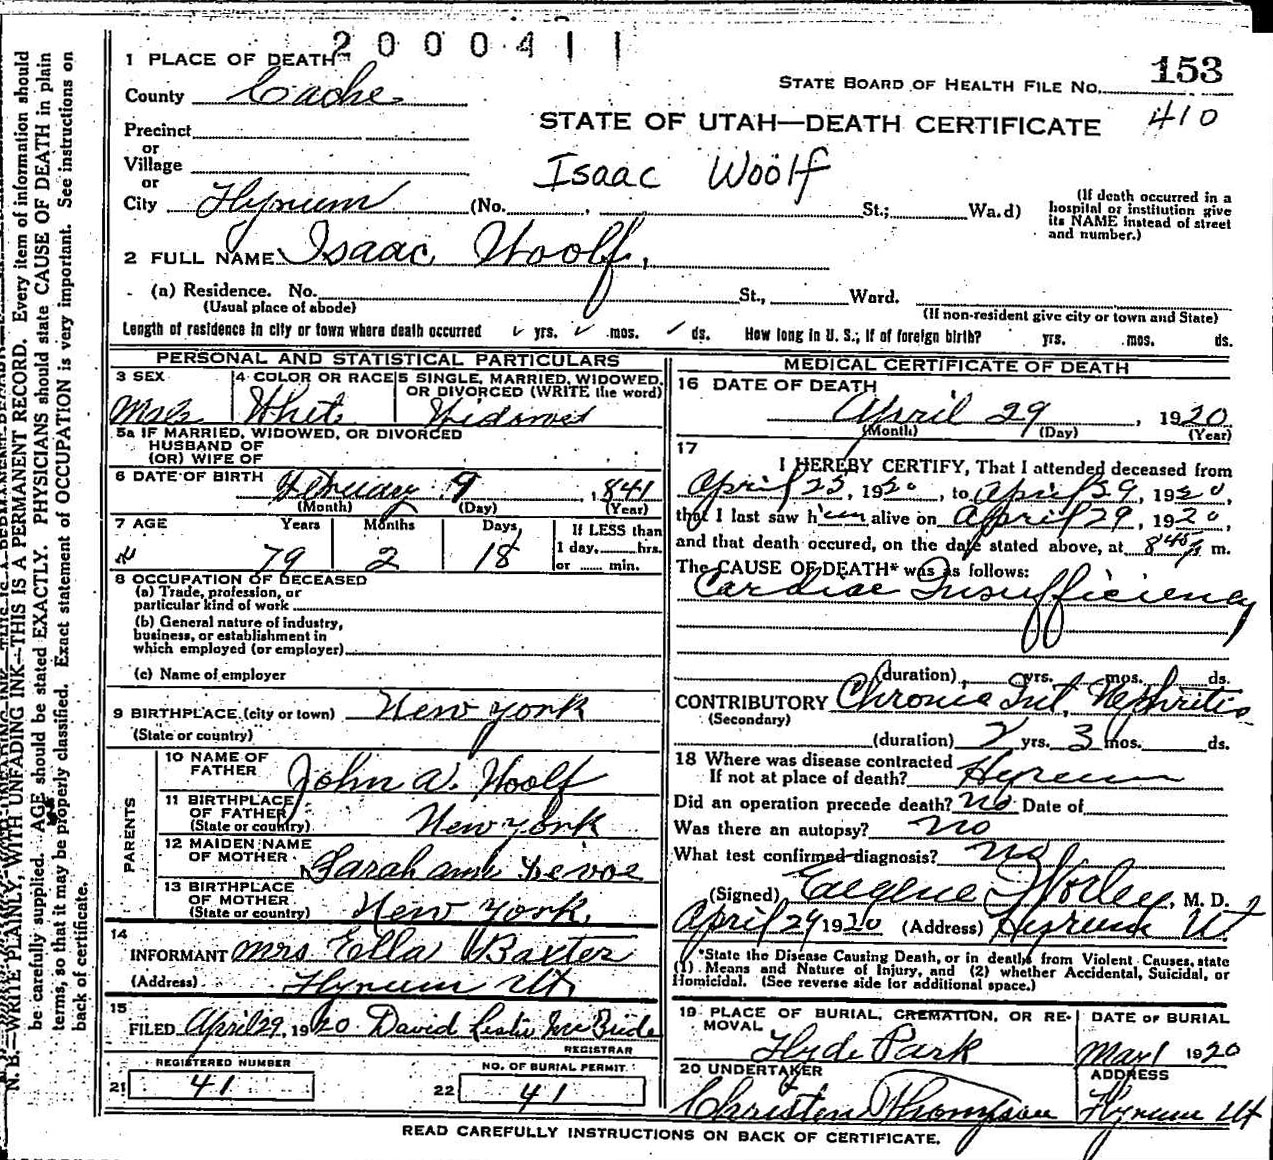 2000411
1 PLACE OF DEATH
STATE BOARD OF HEALTH FILE No. 153
County Cache
410
STATE OF UTAH—DEATH CERTIFICATE
Precinct
or
Village
Isaac Woolf
or
City Hyrum (No. , St.; Wa.d)
(If death occurred in a hospital or institution give its NAME instead of street and number.)
2 FULL NAME Isaac Woolf,
(a) Residence. No. St., Ward.
(Usual place of abode)
(If non-resident give city or town and State)
Length of residence in city or town where death occurred yrs. mos. ds. How long in U. S.; if of foreign birth? yrs. mos. ds.
PERSONAL AND STATISTICAL PARTICULARS
3 SEX
Male
4 COLOR OR RACE
White
5 SINGLE, MARRIED, WIDOWED, OR DIVORCED (WRITE the word)
Widowed
5a IF MARRIED, WIDOWED, OR DIVORCED
HUSBAND OF
(OR) WIFE OF
6 DATE OF BIRTH February 9, 1841
(Month) (Day) (Year)
7 AGE Years Months Days If LESS than
79 2 18 1 day, hrs.
or min.
8 OCCUPATION OF DECEASED
(a) Trade, profession, or
particular kind of work
(b) General nature of industry,
business, or establishment in
which employed (or employer)
(c) Name of employer
9 BIRTHPLACE (city or town) New York
(State or country)
PARENTS
10 NAME OF
FATHER John A. Woolf
11 BIRTHPLACE
OF FATHER
(State or country) New York
12 MAIDEN NAME
OF MOTHER Sarah ann Devoe
13 BIRTHPLACE
OF MOTHER
(State or country) New York,
14
INFORMANT Mrs Ella Baxter
(Address) Hyrum Ut,
15
FILED April 29, 1920 David Leslie McBride
REGISTRAR
REGISTERED NUMBER
21 41
NO. OF BURIAL PERMIT
22 41
MEDICAL CERTIFICATE OF DEATH
16 DATE OF DEATH
April 29, 1920
(Month) (Day) (Year)
17
I HEREBY CERTIFY, That I attended deceased from
April 23, 1920, to April 29, 1920,
that I last saw him alive on April 29, 1920,
and that death occured, on the date stated above, at 845 m.
The CAUSE OF DEATH* was as follows:
Cardiac Insufficiency
(duration) yrs. mos. ds.
CONTRIBUTORY Chronic Int. Nephritis
(Secondary)
(duration) 2 yrs. 3 mos. ds.
18 Where was disease contracted
If not at place of death? Hyrum
Did an operation precede death? No Date of
Was there an autopsy? No
What test confirmed diagnosis? No
(Signed) Eugene Worley, M. D.
April 29 1920 (Address) Hyrum Ut
*State the Disease Causing Death, or in deaths from Violent Causes, state
(1) Means and Nature of Injury, and (2) whether Accidental, Suicidal, or
Homicidal. (See reverse side for additional space.)
19 PLACE OF BURIAL, CREMATION, OR RE-
MOVAL
Hyde Park
DATE OF BURIAL
May 1 1920
20 UNDERTAKER
Christen Thompson
ADDRESS
Hyrum Ut
READ CAREFULLY INSTRUCTIONS ON BACK OF CERTIFICATE.
N. B.—WRITE PLAINLY, WITH UNFADING INK—THIS IS A PERMANENT RECORD. Every item of information should
be carefully supplied. AGE should be stated EXACTLY. PHYSICIANS should state CAUSE OF DEATH in plain
terms, so that it may be properly classified. Exact statement of OCCUPATION is very important. See instructions on
back of certificate.